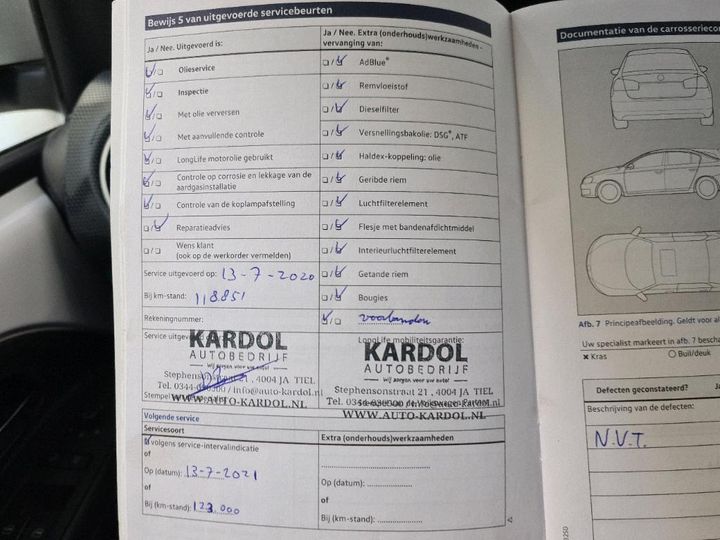 Bewijs 5 van uitgevoerde servicebeurten
Ja / Nee. Uitgevoerd is:
Olieservice
Inspectie
Met olie verversen
Met aanvullende controle
LongLife motorolie gebruikt
Controle op corrosie en lekkage van de
aardgasinstallatie
Controle van de koplampafstelling
Reparatieadvies
Wens klant
(ook op de werkorder vermelden)
Service uitgevoerd op: 13-7-2020
Bij km-stand: 118.851
Rekeningnummer:
Service uitgevoerd
KARDOL
AUTOBEDRIJF
Wij zorgen voor uw auto!
Stephensonstraat 21, 4004 JA TIEL
Tel. 0344- / info@auto-kardol.nl
WWW.AUTO-KARDOL.NL
Ja / Nee. Extra (onderhouds)werkzaamheden -
vervanging van:
AdBlue®
Remvloeistof
Dieselfilter
Versnellingsbakolie: DSG®, ATF
Haldex-koppeling: olie
Geribde riem
Luchtfilterelement
Flesje met bandenafdichtmiddel
Interieurluchtfilterelement
Getande riem
Bougies
voorbanden
LongLife mobiliteitsgarantie:
KARDOL
AUTOBEDRIJF
Wij zorgen voor uw auto!
Stephensonstraat 21, 4004 JA TIEL
WWW.AUTO-KARDOL.NL
Volgende service
Servicesoort
volgens service-intervalindicatie
of
Op (datum): 13-7-2021
of
Bij (km-stand): 123.000
Extra (onderhouds)werkzaamheden
Op (datum):
of
Bij (km-stand):
Documentatie van de carrosseriecon
Afb. 7 Principeafbeelding. Geldt voor al
Uw specialist markeert in afb. 7 bescha
x Kras
O Buil/deuk
Defecten geconstateerd?
Beschrijving van de defecten:
N.V.T.